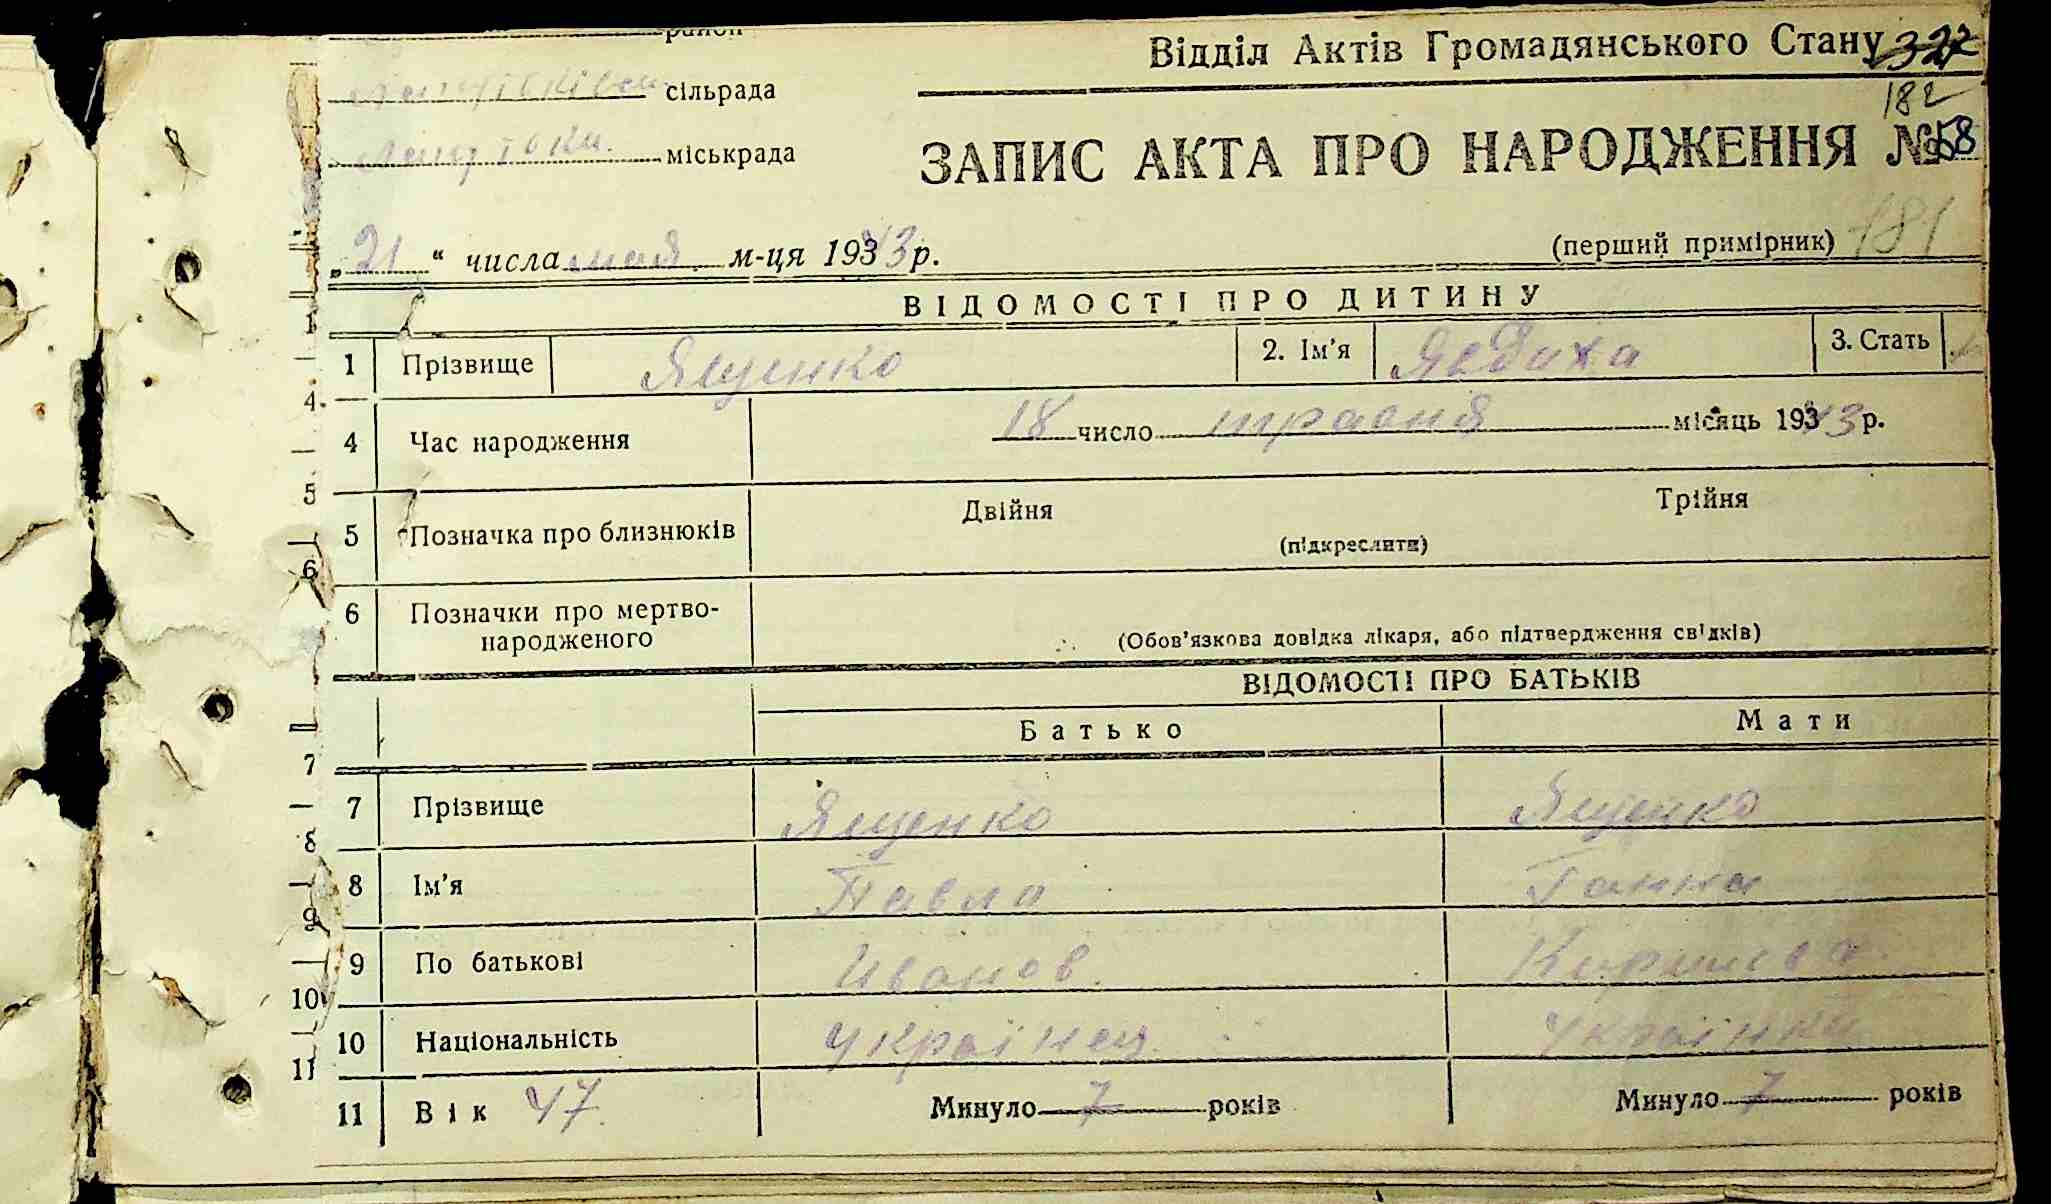 район
Відділ Актів Громадянського Стану 322
сільрада
182
міськрада
ЗАПИС АКТА ПРО НАРОДЖЕННЯ № 58
„21“ числа мая м-ця 19343 р.
(перший примірник) 181
ВІДОМОСТІ ПРО ДИТИНУ
1 Прізвище Ященко 2. Ім'я Явдиха 3. Стать
4 Час народження 18 число травня місяць 19343 р.
5 Позначка про близнюків Двійня Трійня
(підкреслити)
6 Позначки про мертво-
народженого (Обов'язкова довідка лікаря, або підтвердження свідків)
ВІДОМОСТІ ПРО БАТЬКІВ
Батько Мати
7 Прізвище Ященко Ященко
8 Ім'я Павло Ганна
9 По батькові Иванов.
10 Національність Українец Українка
11 Вік 47 Минуло 7 років Минуло 7 років